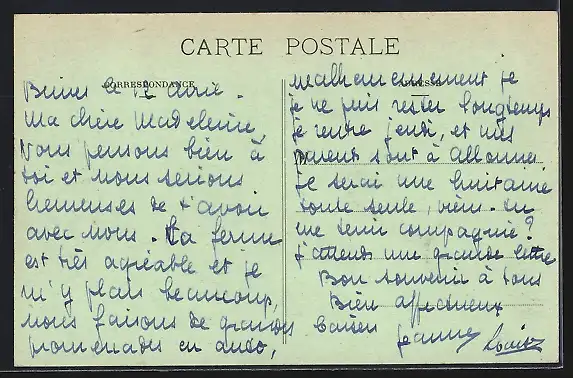 CARTE POSTALE
CORRESPONDANCE
ADRESSE
le 12 Avril.
Ma chère Madeleine,
Nous pensons bien à
toi et nous serions
heureuses de t'avoir
avec nous. La ferme
est très agréable et je
m'y plais beaucoup,
nous faisons de grandes
promenades en auto,
Malheureusement je
je ne puis rester longtemps
je rentre jeudi, et mes
parents sont à Allonnes
je serai une huitaine
toute seule, viens-tu
me tenir compagnie?
J'attends une grande lettre
Bon souvenir à tous
Bien affectueux
baisers
Jeanne